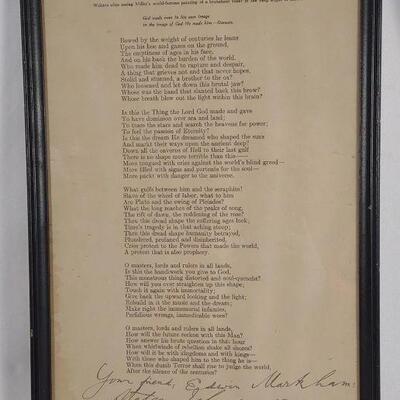 Written after seeing Millet's world-famous painting of a brutalized toiler
God made man in his own image
in the image of God He made him—Genesis.
Bowed by the weight of centuries he leans
Upon his hoe and gazes on the ground,
The emptiness of ages in his face,
And on his back the burden of the world.
Who made him dead to rapture and despair,
A thing that grieves not and that never hopes,
Stolid and stunned, a brother to the ox?
Who loosened and let down this brutal jaw?
Whose was the hand that slanted back this brow?
Whose breath blew out the light within this brain?
Is this the Thing the Lord God made and gave
To have dominion over sea and land;
To trace the stars and search the heavens for power;
To feel the passion of Eternity?
Is this the dream He dreamed who shaped the suns
And markt their ways upon the ancient deep?
Down all the caverns of Hell to their last gulf
There is no shape more terrible than this—
More tongued with cries against the world's blind greed—
More filled with signs and portents for the soul—
More packt with danger to the universe.
What gulfs between him and the seraphim!
Slave of the wheel of labor, what to him
Are Plato and the swing of Pleiades?
What the long reaches of the peaks of song,
The rift of dawn, the reddening of the rose?
Thru this dread shape the suffering ages look;
Time's tragedy is in that aching stoop;
Thru this dread shape humanity betrayed,
Plundered, profaned and disinherited,
Cries protest to the Powers that made the world,
A protest that is also prophecy.
O masters, lords and rulers in all lands,
Is this the handiwork you give to God,
This monstrous thing distorted and soul-quencht?
How will you ever straighten up this shape;
Touch it again with immortality;
Give back the upward looking and the light;
Rebuild in it the music and the dream;
Make right the immemorial infamies,
Perfidious wrongs, immedicable woes?
O masters, lords and rulers in all lands,
How will the future reckon with this Man?
How answer his brute question in that hour
When whirlwinds of rebellion shake all shores?
How will it be with kingdoms and with kings—
With those who shaped him to the thing he is—
When this dumb Terror shall rise to judge the world,
After the silence of the centuries?
Your friend, Edwin Markham: